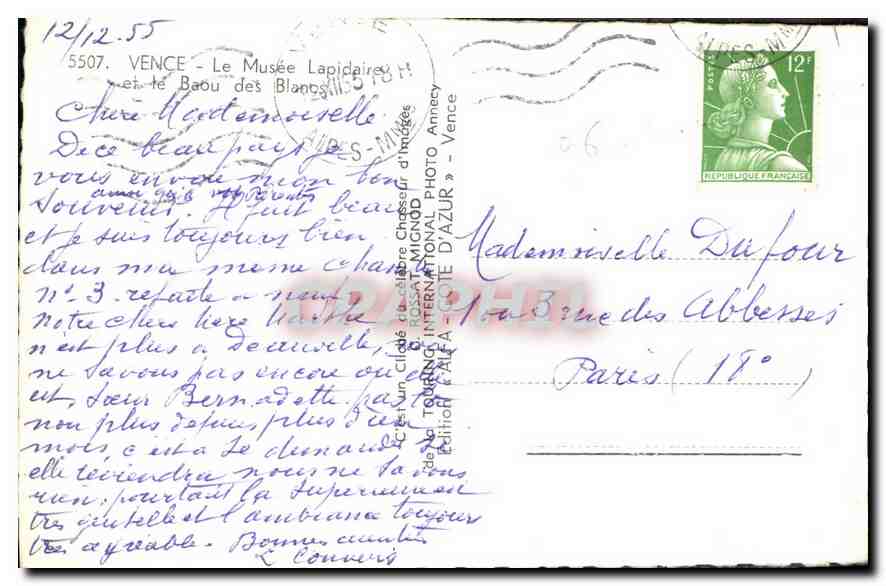 12/12.55
5507. VENCE - Le Musée Lapidaire
et le Baou des Blancs
Chère Mademoiselle
De ce beau pays je
vous envoie mon bon
ainsi qu'à vos parents
souvenir. Il fait beau
et je suis toujours bien
dans ma meme chambre
n° 3 refaite a neuf
notre chere
n'est plus a Deauville,
ne savons pas encore ou elle
est, Sœur Bernadette pas
non plus depuis plus d'un
mois, c'est a se demander si
elle reviendra nous ne savons
rien. pourtant la Superieure est
tres gentille et l'ambiance toujours
tres agréable. Bonnes amitiés
L. Convers
C'est un Cliché du célèbre Chasseur d'Images
O. ROSSAT-MIGNOD
de la TOURING INTERNATIONAL PHOTO Annecy
Edition « ALFA - COTE D'AZUR » - Vence
ALPES-MMES
ALPES-MMES
POSTES 12F
REPUBLIQUE FRANÇAISE
Mademoiselle Dufour
3 rue des Abbesses
Paris (18°
CPAPHIL